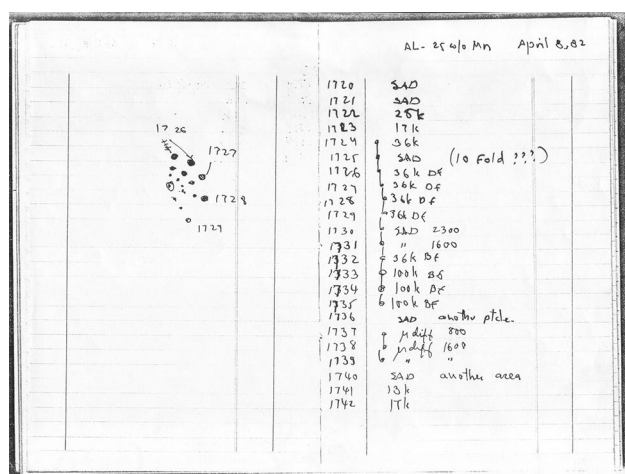 AL-25 w/o Mn April 8,82
1726
1727
1728
1729
1720 SAD
1721 SAD
1722 25k
1723 17k
1724 36k
1725 SAD (10 Fold ???)
1726 36k DF
1727 36k DF
1728 36k DF
1729 36k DF
1730 SAD 2300
1731 " 1600
1732 36k BF
1733 100k BF
1734 100k BF
1735 100k BF
1736 SAD another ptcle.
1737 μdiff 800
1738 μdiff 1600
1739 " "
1740 SAD another area
1741 13k
1742 17k